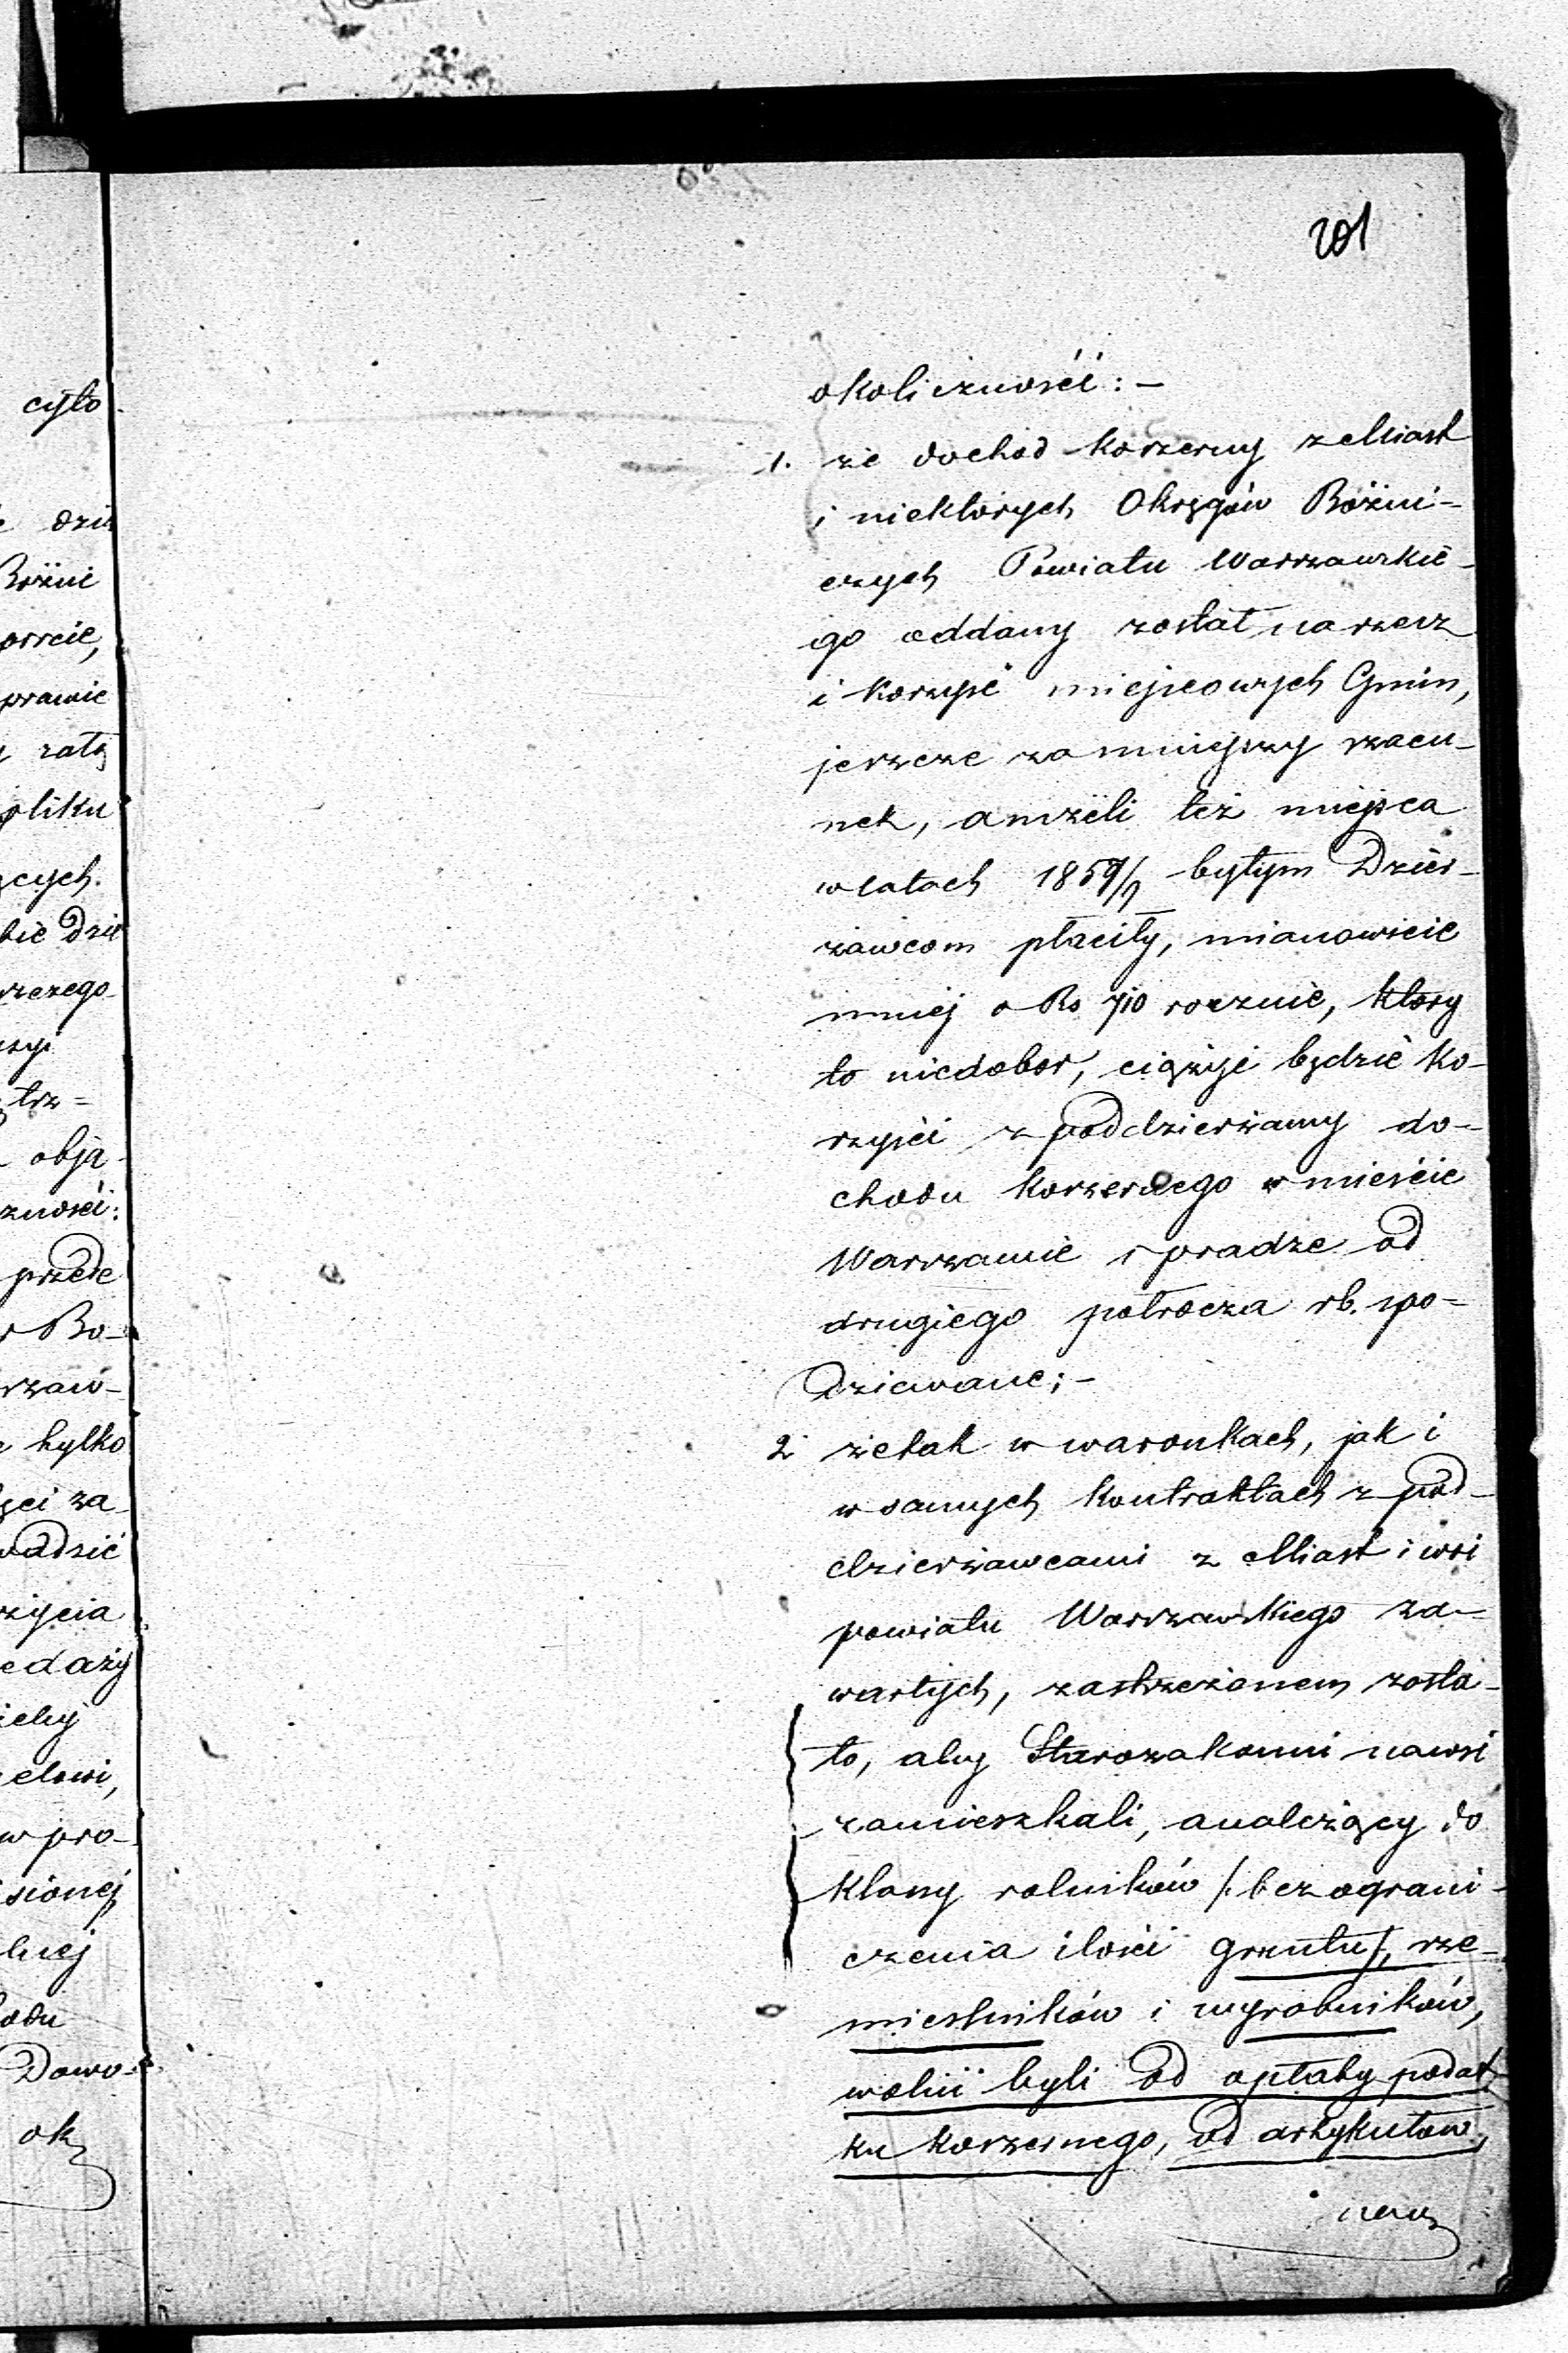 201
okoliczność: —
1. że dochód koszerny z Miast
i niektórych Okręgów Bóżni-
czych Powiatu Warszawskie-
go oddany został na rzecz
i korzyść miejscowych Gmin,
jeszcze za mniejszy szacu-
nek, aniżeli też miejsca
w latach 1859/ bytym Dzier-
żawcom płaciły, mianowicie
mniej o Rs 710 rocznie, który
to niedobor, ciężyć będzie ko-
rzyści z poddzierżawy do-
chodu koszernego w mieście
Warszawie i pradze od
drugiego półrocza rb. spo-
dziewane; —
2. że tak w warunkach, jak i
w samych kontraktach z pod-
dzierżawcami z Miast i wsi
powiatu Warszawskiego za-
wartych, zastrzeżonem zosta-
ło, aby Starozakonni na wsi
zamieszkali, a należący do
klassy rolników /: bez ograni-
czenia ilości gruntu :/, rze-
mieślników i wyrobników,
wolni byli od opłaty podat-
ku koszernego, od artykułów,
cyto
dzie
Bóżni
prawie
ratę
pliku
ących.
bie dzie
rzczego
trz=
obja
zności:
przede
Bo-
rzaw-
tylko
ęci za-
wadzić
życia
edaży
elowi,
w pro-
sionej
lnej
odu
Dowo-
ok